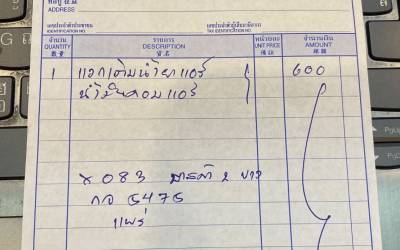 ที่อยู่ 住址
ADDRESS
เลขประจำตัวประชาชน
IDENTIFICATION NO.
เลขประจำตัวผู้เสียภาษีอากร
TAX IDENTIFICATION NO.
จำนวน รายการ หน่วยละ จำนวนเงิน
QUANTITY DESCRIPTION UNIT PRICE AMOUNT
數量 貨名 價 銀碼
1 แวกเติมน้ำยาแอร์ 600
น้ำมันคอมแอร์
x 083
กจ 5475
แพร่